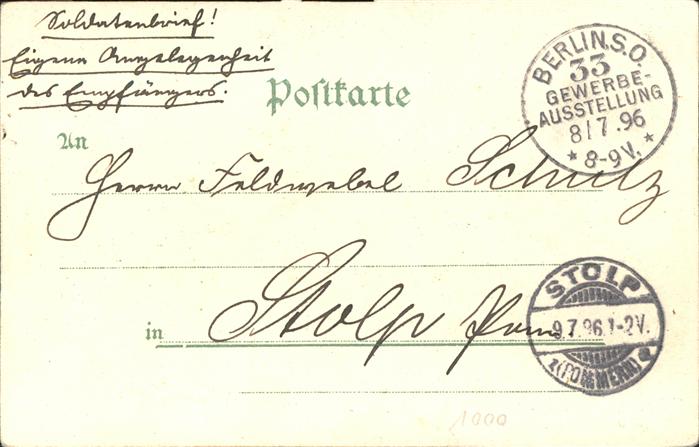 Soldatenbrief!
Eigene Angelegenheit
des Empfängers.
Postkarte
BERLIN.S.O.
33
GEWERBE-
AUSSTELLUNG
8/7.96
* 8-9V. *
An
Herrn Feldwebel Schulz
STOLP
9.7.96.1-2V.
*(POMMERN)
in Stolp Pom
1000